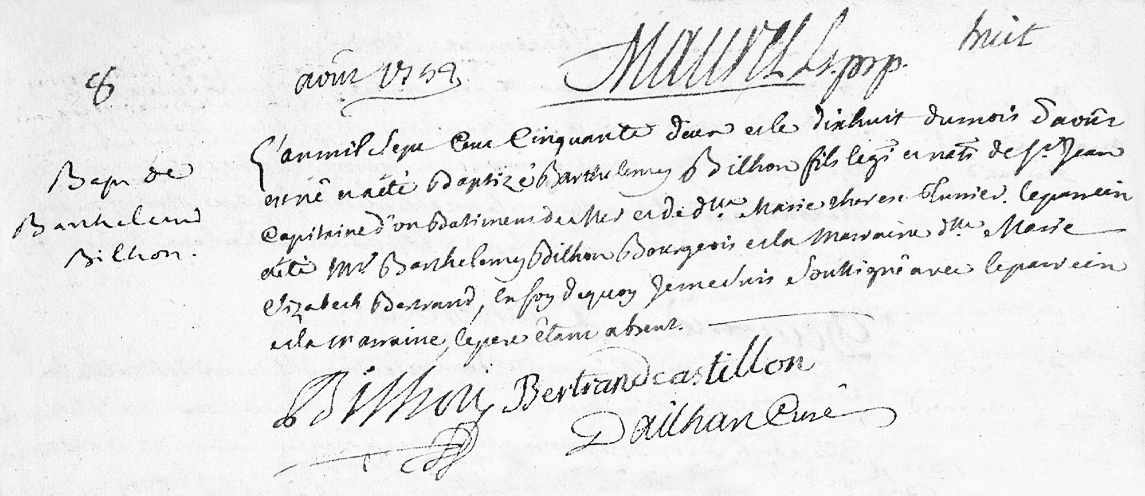 8 août 1752 huit
Bapt de
Barthelemi
Bilhon.
L'an mil Sept Cent Cinquante deux et le dixhuit du mois d'août
est né et a été Baptizé Barthelemy Bilhon fils legit et nat de Sr Jean
Capitaine d'un batiment de Mer et de dlle Marie therese the parrein
a été Mr Barthelemy Bilhon Bourgeois et la Marraine dlle Marie
Elizabeth Bertrand, en foy de quoy Je me suis Soussigné avec le parrein
et la marraine, le pere êtant absent.
Bilhon Bertrand castillon
Dailhan Curé